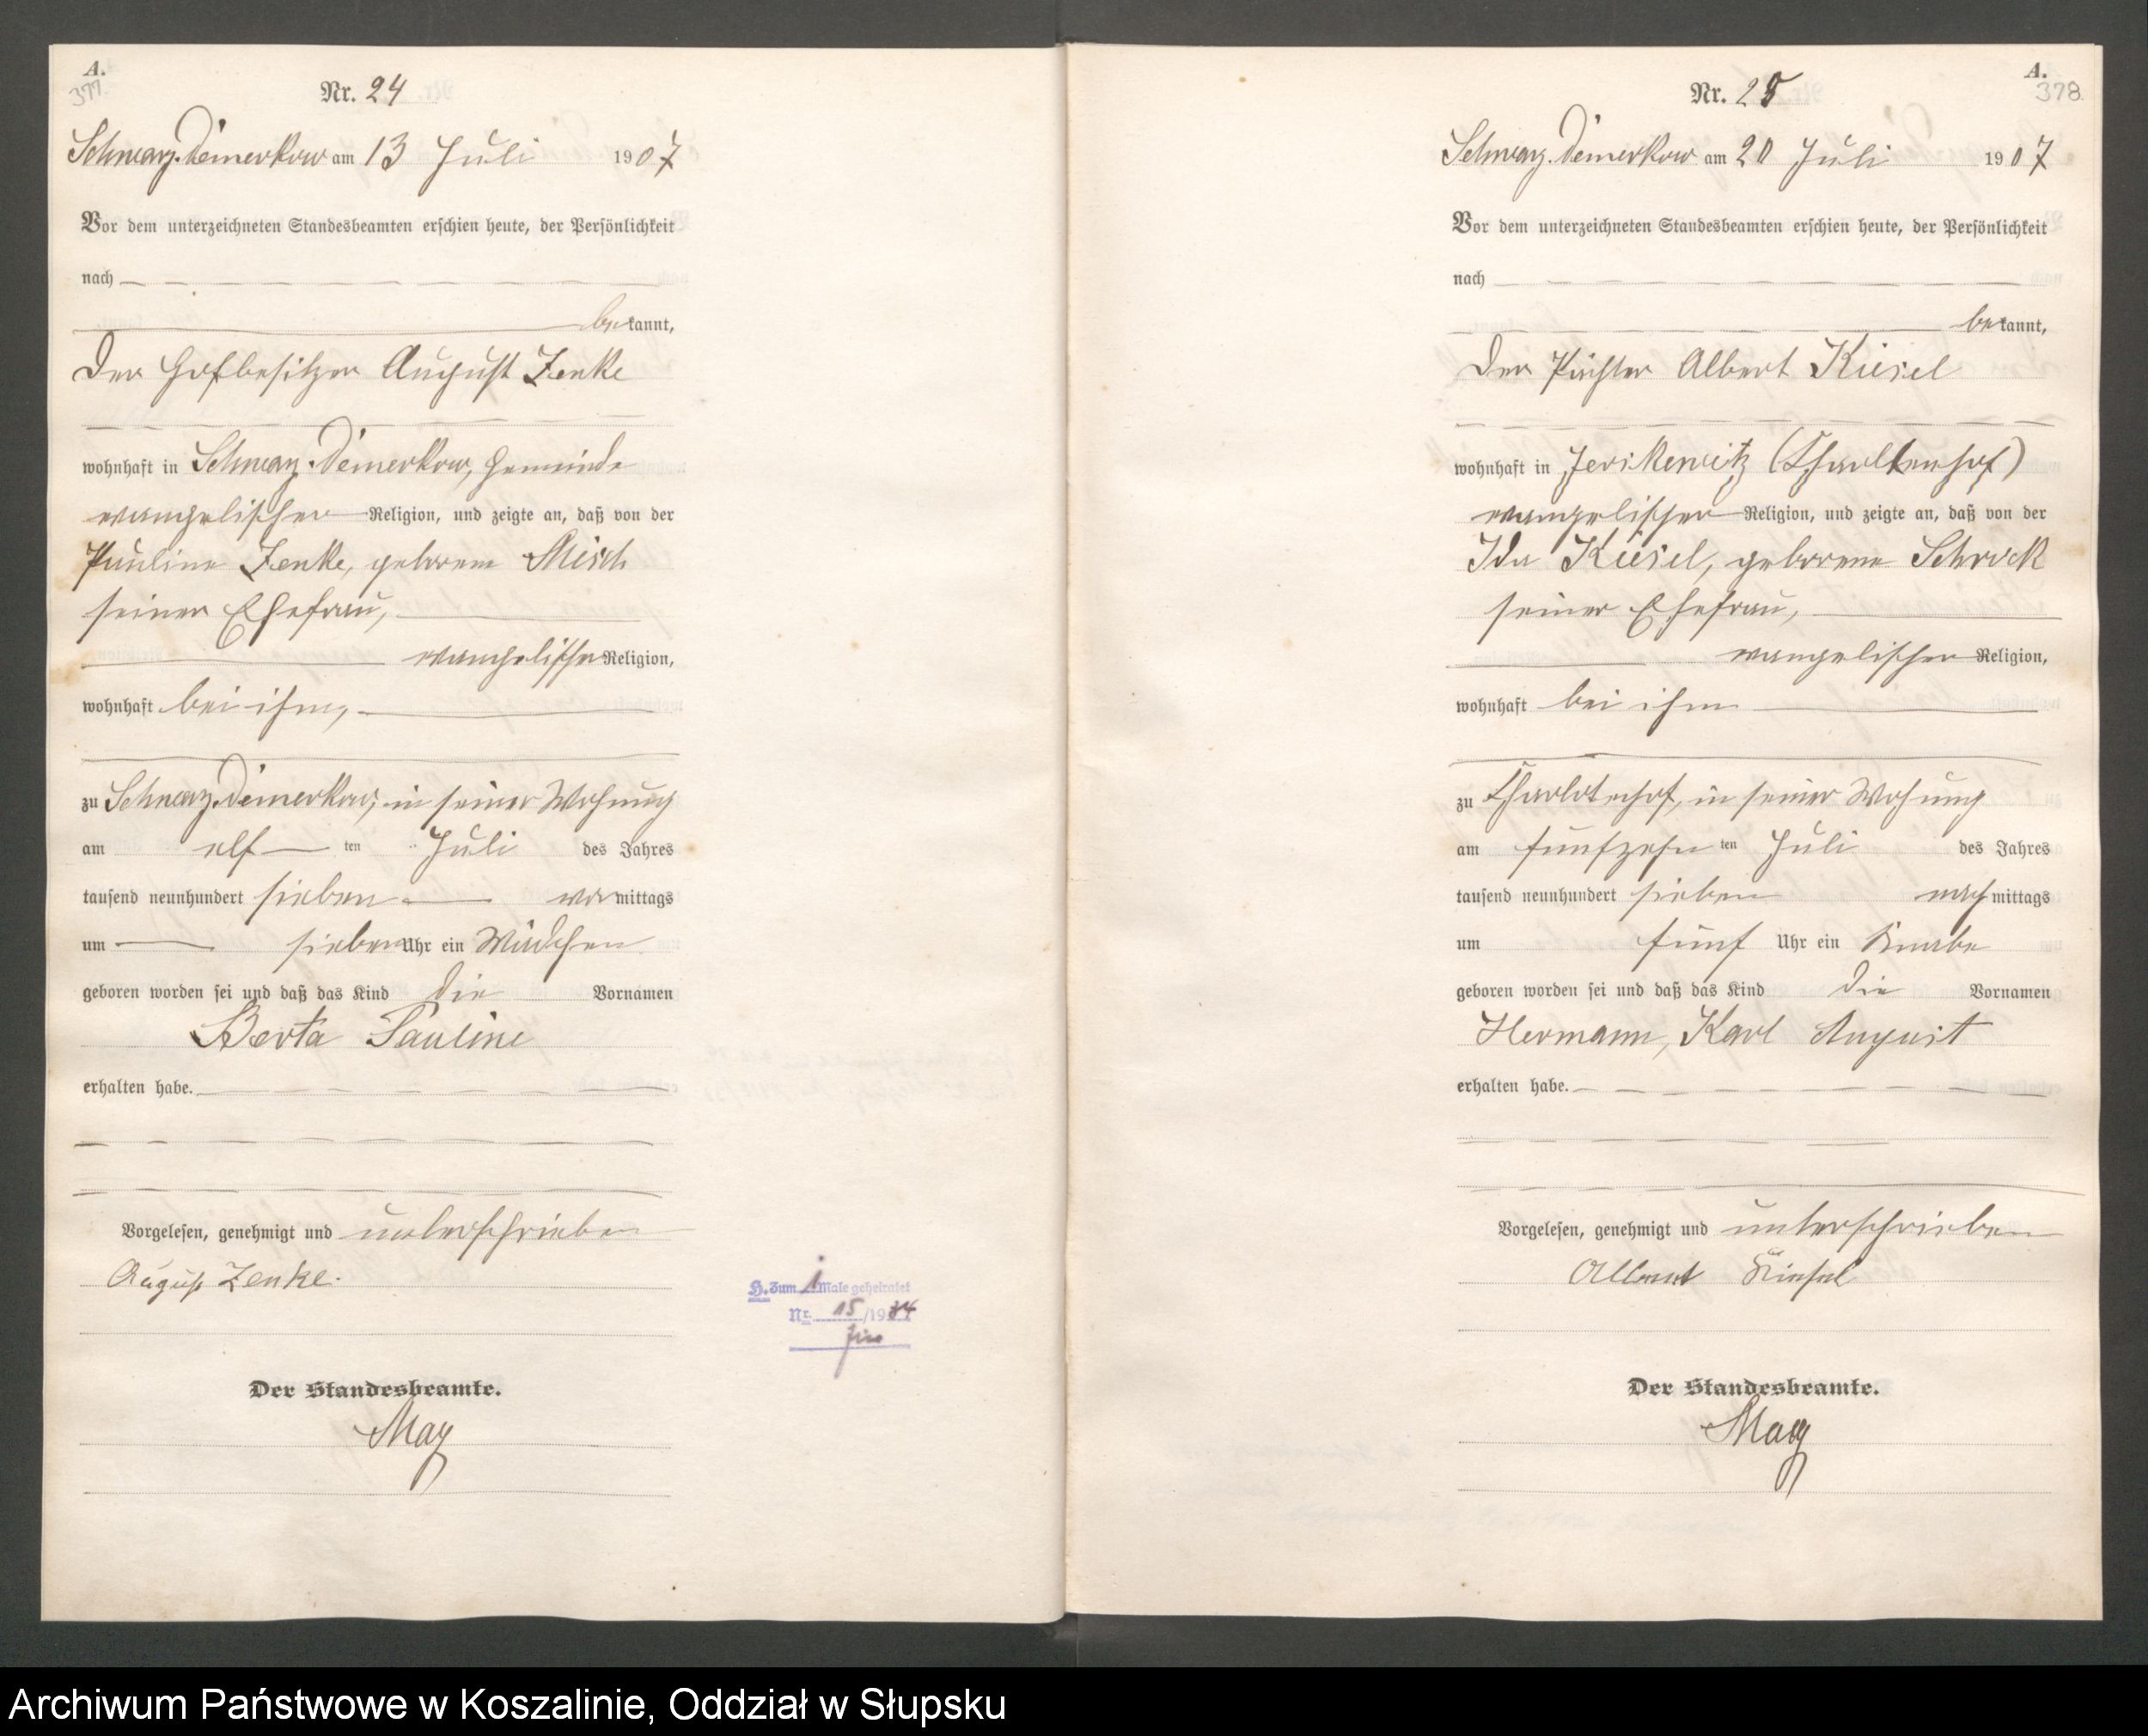 A.
377
Nr. 24
Schwarz-Damerkow am 13 Juli 1907
Vor dem unterzeichneten Standesbeamten erschien heute, der Persönlichkeit
nach
bekannt,
Der Hofbesitzer August Zenke
wohnhaft in Schwarz-Damerkow, Gemeinde
evangelischer Religion, und zeigte an, daß von der
Pauline Zenke, geborene Misch
seiner Ehefrau,
evangelischer Religion,
wohnhaft bei ihm,
zu Schwarz-Damerkow, in seiner Wohnung
am elf ten Juli des Jahres
tausend neunhundert sieben vormittags
um sieben Uhr ein Mädchen
geboren worden sei und daß das Kind die Vornamen
Berta Pauline
erhalten habe.
Vorgelesen, genehmigt und unterschrieben
August Zenke.
H. Zum 1 Male geheiratet
Nr. 15/1934
Der Standesbeamte.
May
A.
378
Nr. 25
Schwarz-Damerkow am 20 Juli 1907
Vor dem unterzeichneten Standesbeamten erschien heute, der Persönlichkeit
nach
bekannt,
Der Pächter Albert Kiesel
wohnhaft in Jerskewitz (Charlottenhof)
evangelischer Religion, und zeigte an, daß von der
Ida Kiesel, geborene Schrock
seiner Ehefrau,
evangelischer Religion,
wohnhaft bei ihm
zu Charlottenhof, in seiner Wohnung
am fünfzehn ten Juli des Jahres
tausend neunhundert sieben nachmittags
um fünf Uhr ein Knabe
geboren worden sei und daß das Kind die Vornamen
Hermann, Karl August
erhalten habe.
Vorgelesen, genehmigt und unterschrieben
Albert Kiesel
Der Standesbeamte.
May
Archiwum Państwowe w Koszalinie, Oddział w Słupsku